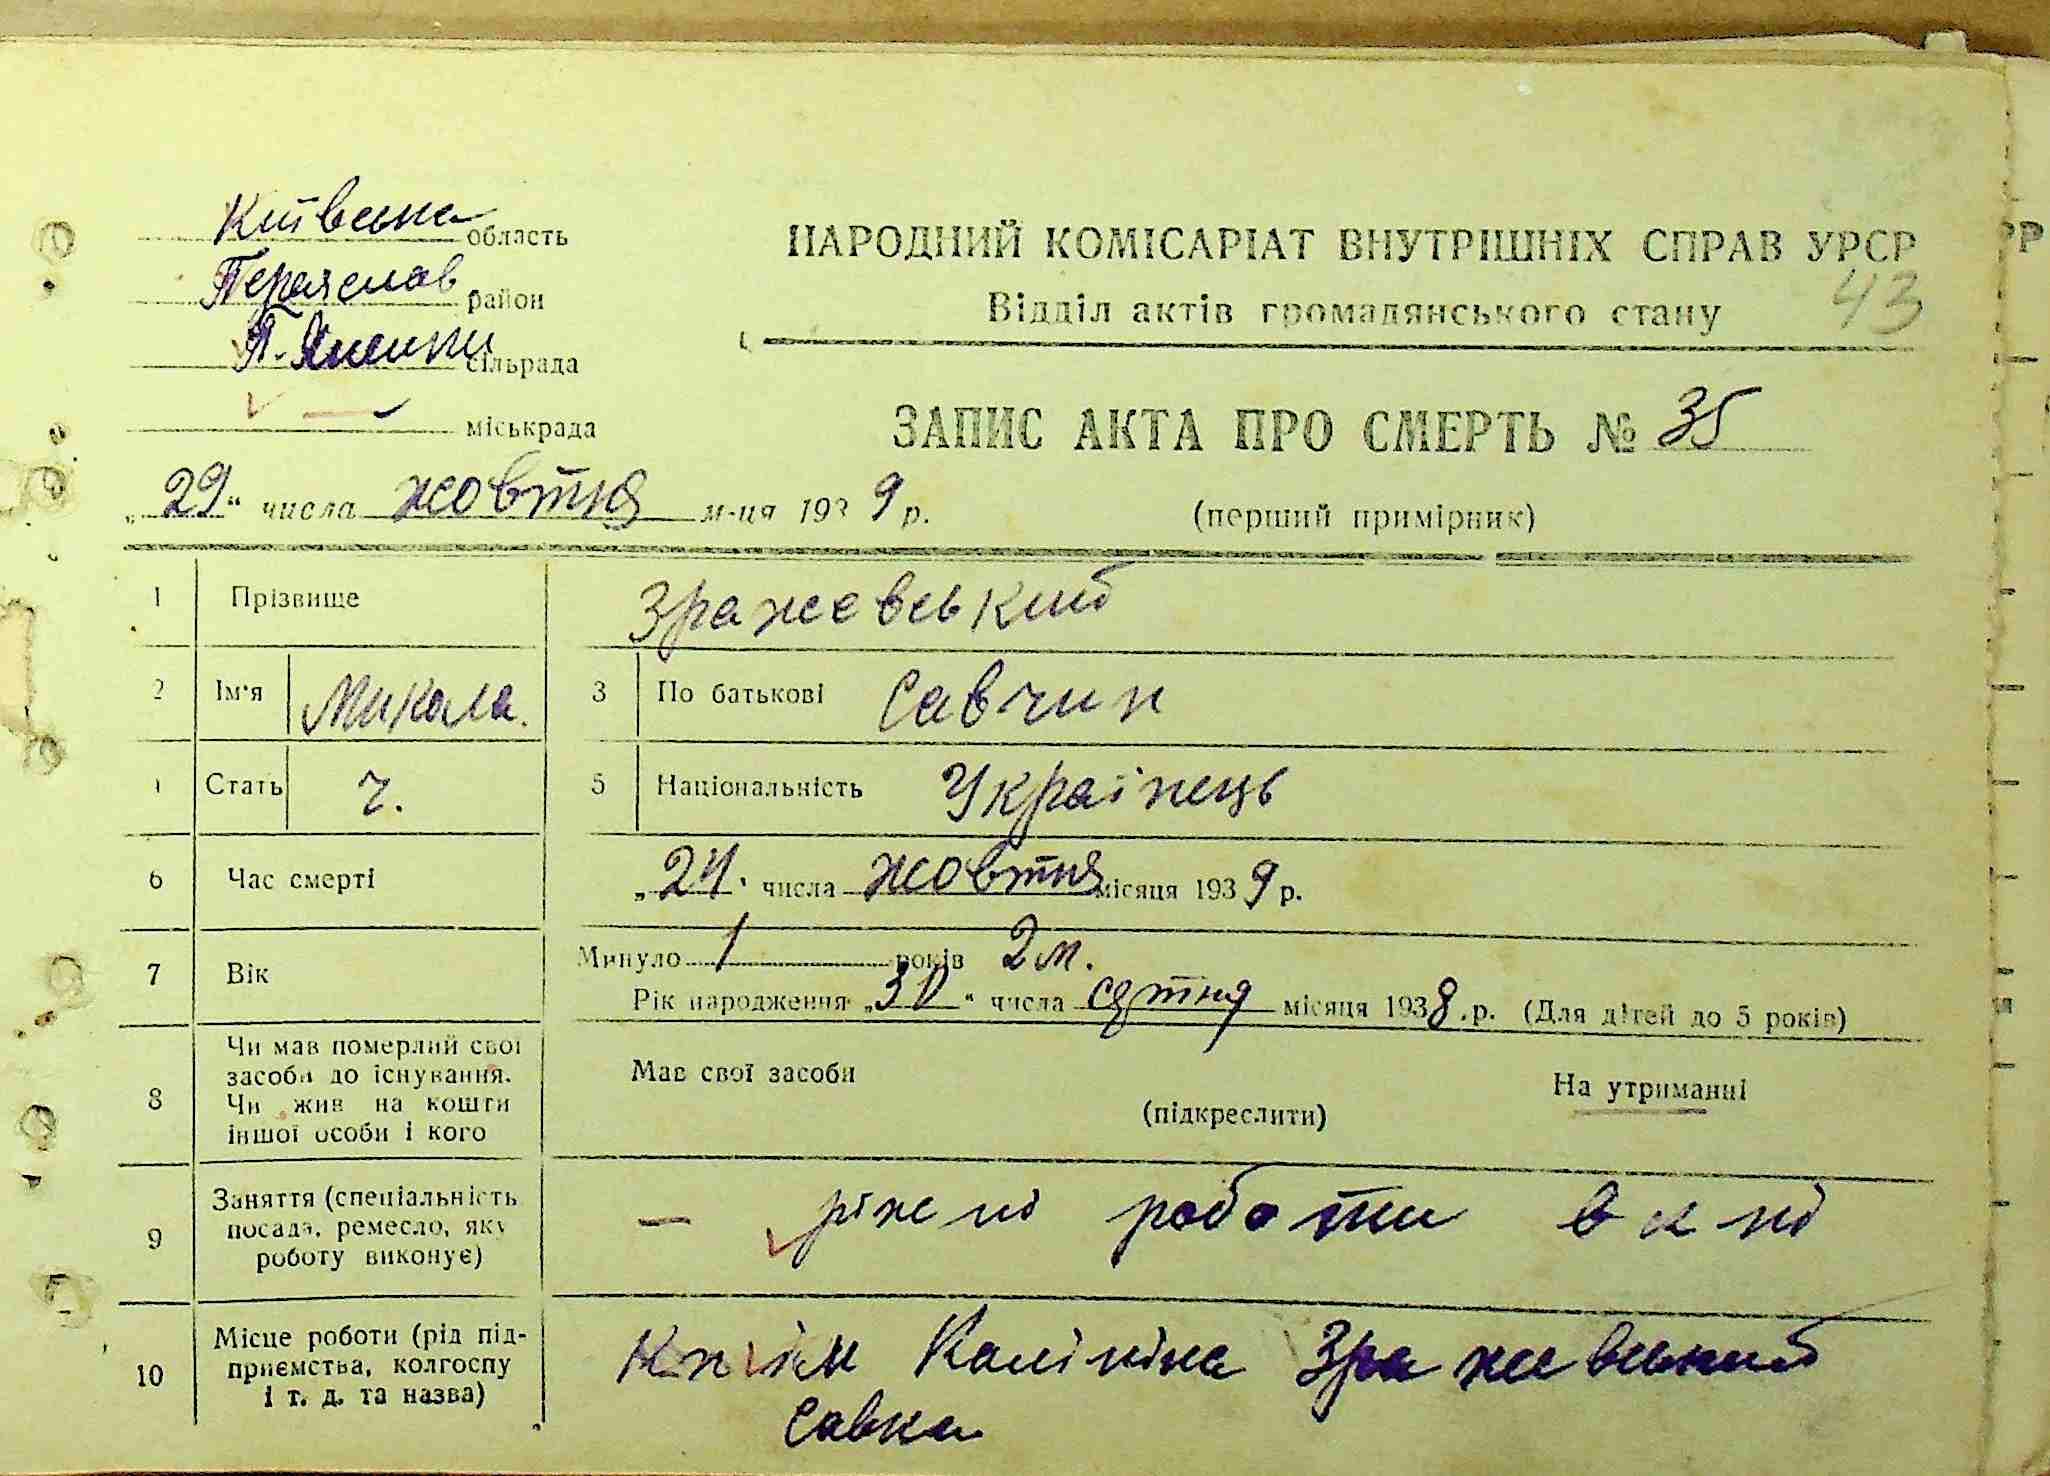 Київська область
Переяслав район
П.-Яненки сільрада
— міськрада
НАРОДНИЙ КОМІСАРІАТ ВНУТРІШНІХ СПРАВ УРСР
Відділ актів громадянського стану
43
ЗАПИС АКТА ПРО СМЕРТЬ № 35
„29“ числа жовтня м-ця 1939 р.
(перший примірник)
1 Прізвище Зражевський
2 Ім'я Микола. 3 По батькові Савчин
Стать ч. 5 Національність Українець
6 Час смерті „24. числа жовтня місяця 1939 р.
7 Вік Минуло 1 років 2 м.
Рік народження „30“ числа серпня місяця 1938.р. (Для дітей до 5 років)
8 Чи мав померлий свої засоби до існування. Чи жив на кошти іншої особи і кого
Мав свої засоби
(підкреслити)
На утриманні
9 Заняття (спеціальність посада, ремесло, яку роботу виконує)
— ріжні роботи в к-пі
10 Місце роботи (рід підприємства, колгоспу і т. д. та назва)
Калініна Зражевський
Савка
РР